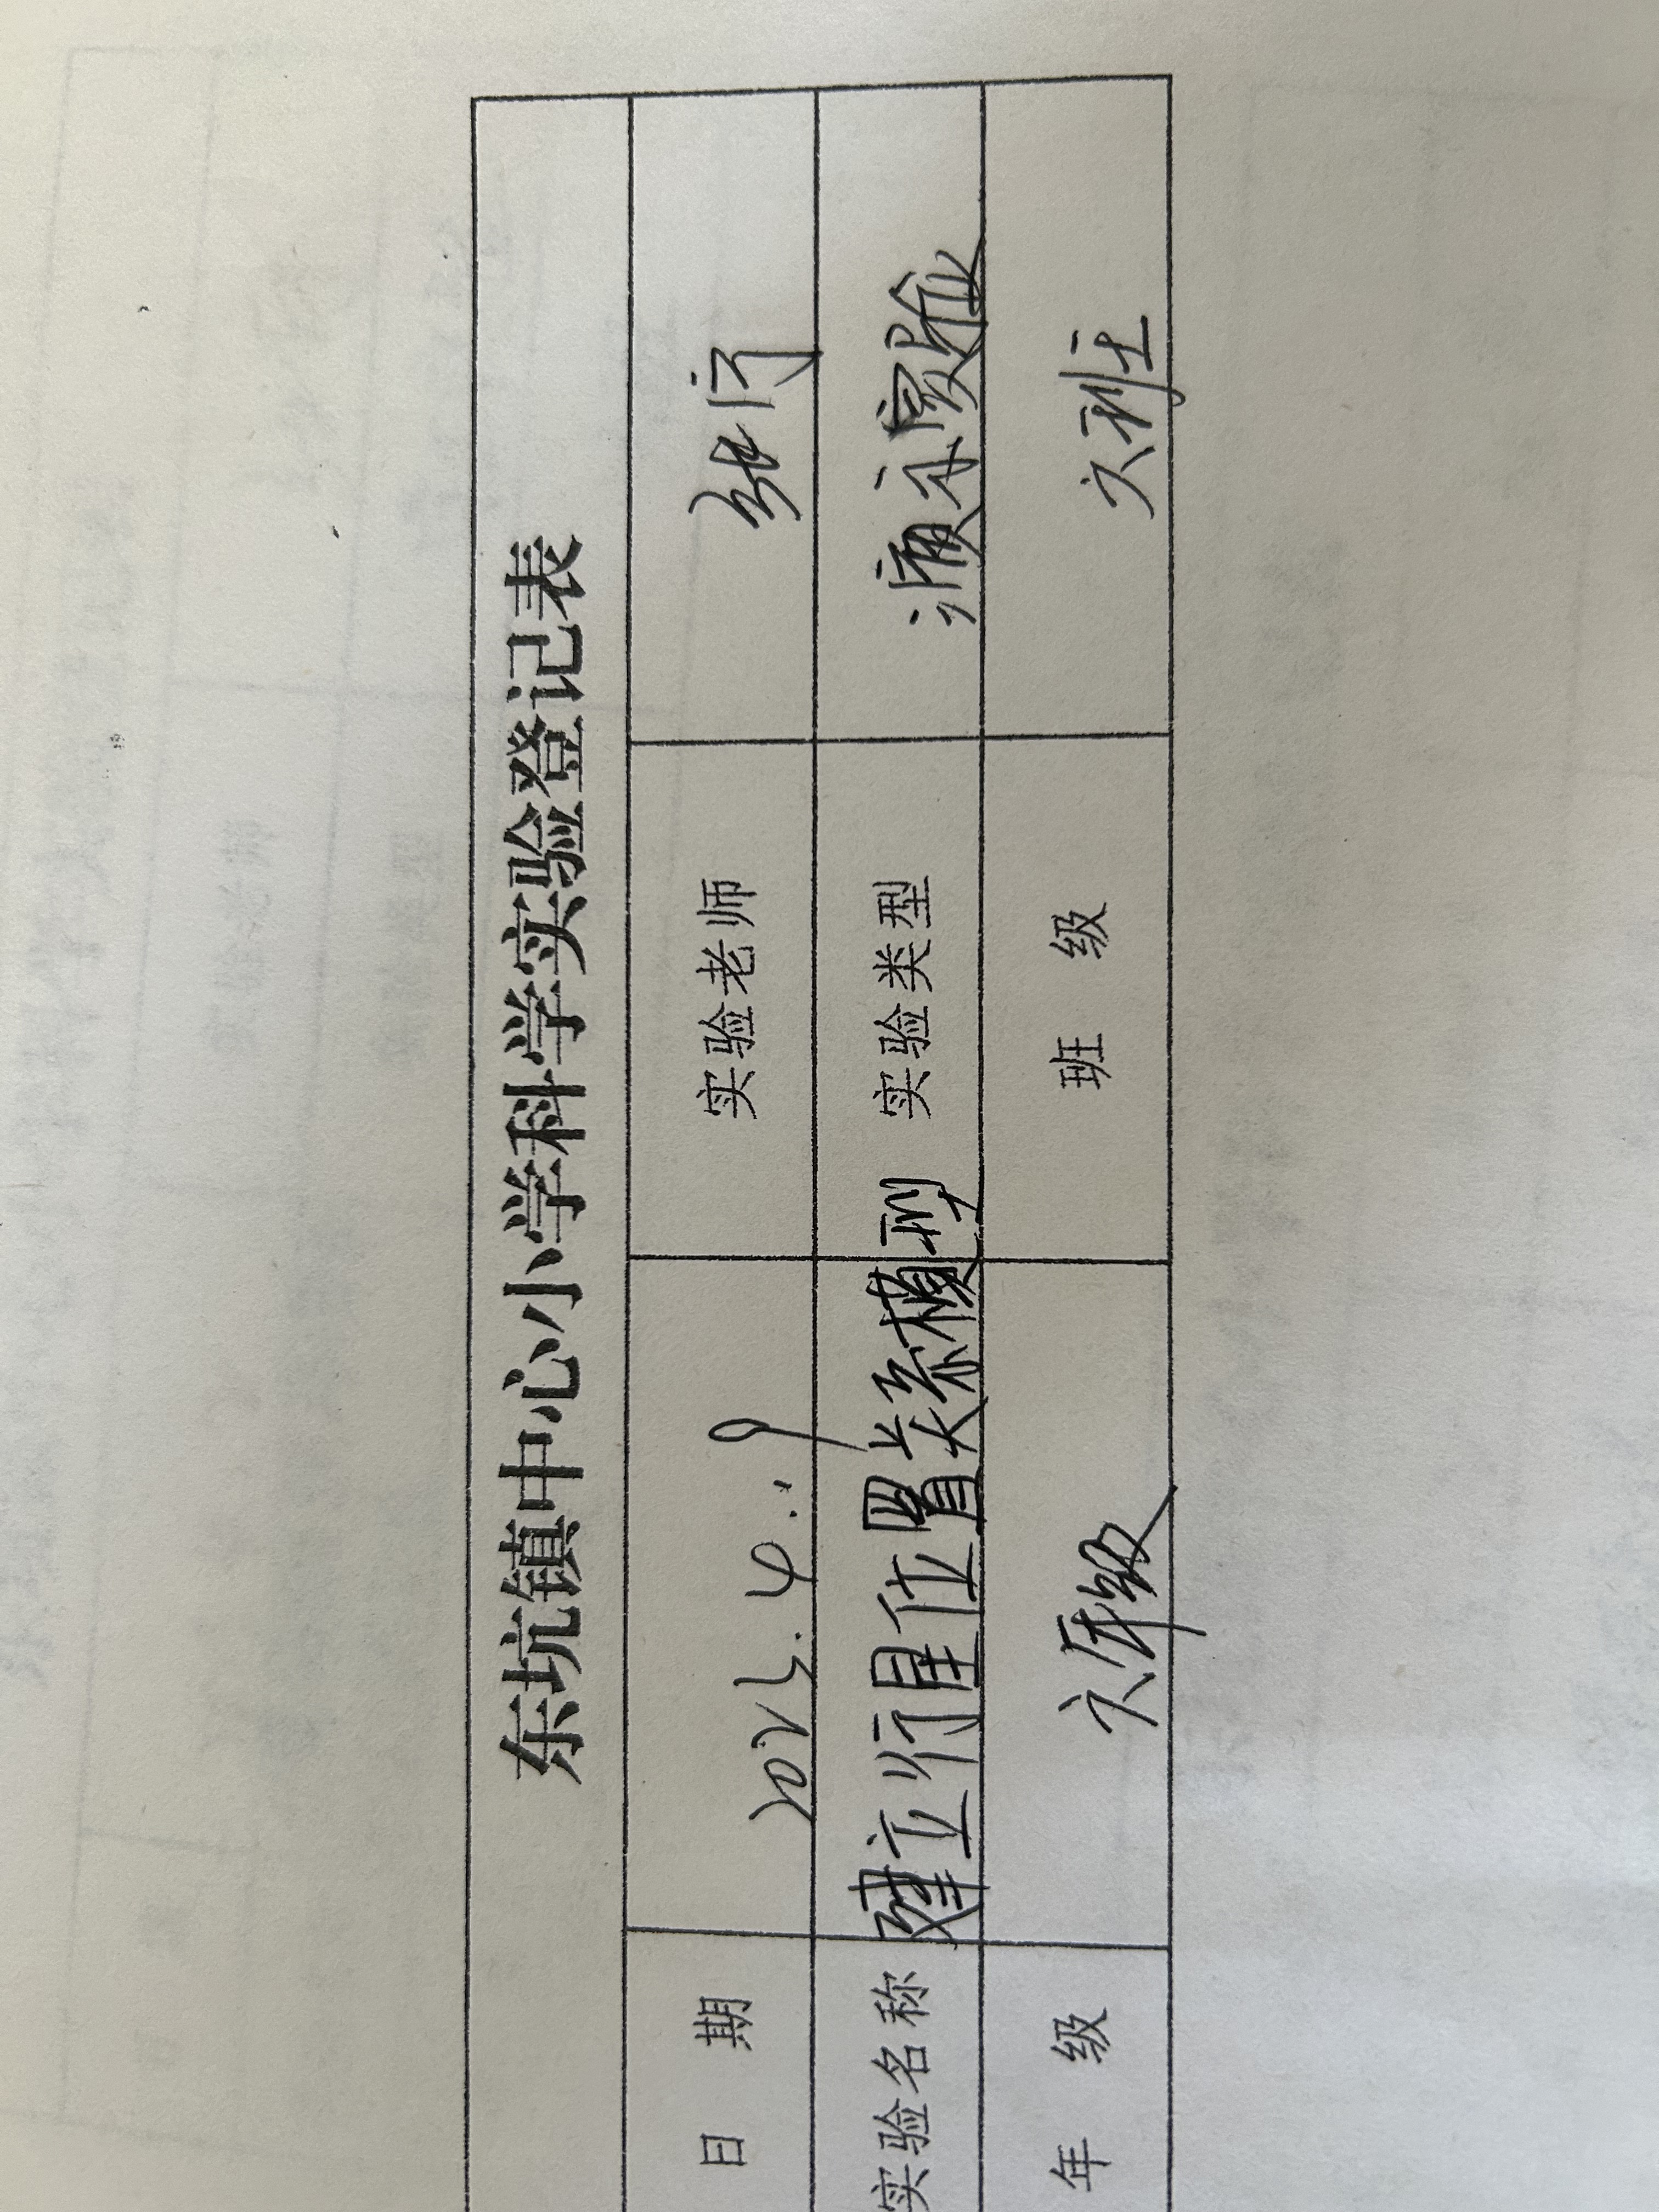 东坑镇中心小学科学实验登记表
日 期 2025.4.9 实验老师
实验名称 建立行星位置关系模型 实验类型 演示实验
年 级 六年级 班 级